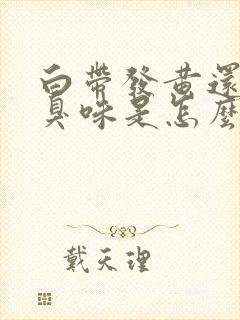 白帶發黃還
臭味是怎麼
戴天理